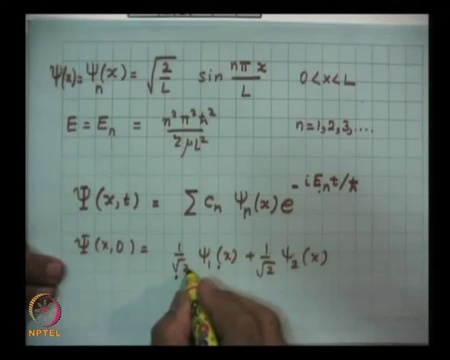 Ψ(x) = Ψn(x) = √(2/L) sin nπx/L 0 < x < L
E = En = n²π²ħ²/2μL² n = 1, 2, 3, ....
Ψ(x,t) = Σ cn Ψn(x) e^(-iEnt/ħ)
Ψ(x,0) = 1/√2 Ψ1(x) + 1/√2 Ψ2(x)
NPTEL